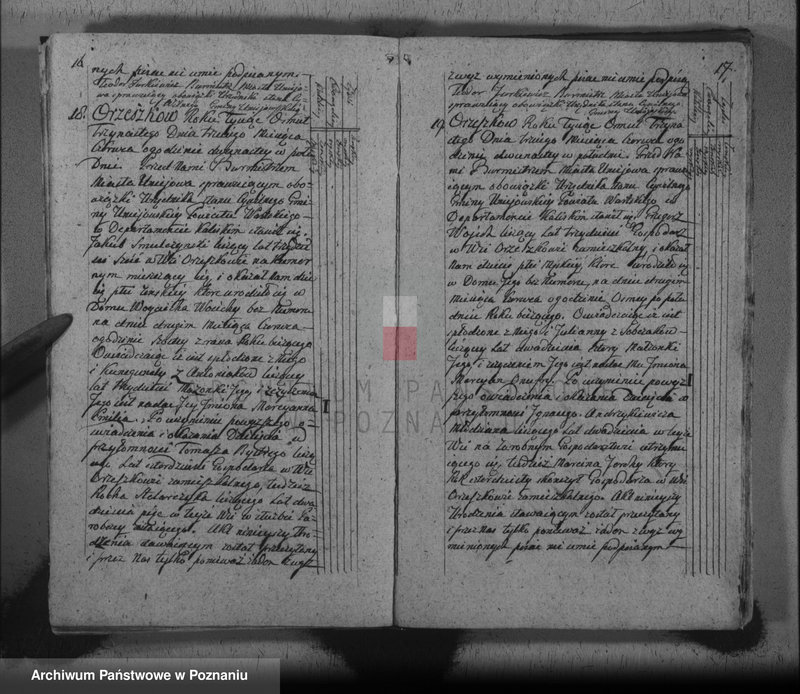 16.
nych pisac nie umie podpisanym
Teodor Jurkiewicz Burmistrz Miasta Uniejo
wa sprawuiący obowiązki Urzednika stanu Cy
18. Orzeszkow Roku Tysiąc Osmset
Trzynastego Dnia Trzeciego Miesiąca
Czerwca o godzinie dwunastey w połu
Dnie. Przed Nami Burmistrzem
Miasta Uniejowa sprawuiącym obo
wiązki Urzędnika Stanu Cywilnego Gmi
ny Uniejowskiey Powiatu Wartskiego
w Departamencie Kaliskim stawił się
Jakub liczący Lat Trzydzie
sci Szesc w Wsi Orzeszkowie na Komor
nym mieszkaiący się, i okazał nam dzie
cię płci Zenskiey ktore urodziło się w
Domu Woyciecha bez Numeru
na dniu drugim Miesiąca Czerwca
o godzinie szostey z rana Roku bieżącego
Oswiadczaiąc iż iest spłodzone z Niego
i Kunegundy z Antoniakow liczącey
Lat Małżonki Jego, i życzeniem
Jego iest nadac Jey Imiona Marcyanna
Emilia. Po uczynieniu powyższego o
swiadczenia i okazania Dziecięcia w
przytomnosci Tomasza Bystrego liczą
cego Lat czterdziesci Gospodarza w Wsi
Orzeszkowie zamieszkałego, tudzież
Stolarczyka liczącego Lat dwa
dziescia pięc w teyże Wsi w służbie Pa
robczey zostaiącego. Akt ninieyszy Uro
dzenia stawaiącym został przeczytany
i przez Nas tylko ponieważ żaden z wyż
17.
zwyż wymienionych pisac nie umie podpisa
Teodor Jurkiewicz Burmistrz Miasta Uniejowa
sprawuiący obowiązki Urzednika stanu Cywilnego
Gminy Uniejowskiey
19. Orzeszkow Roku Tysiąc Osmset Trzyna
stego Dnia Trzeciego Miesiąca Czerwca o go
dzinie dwunastey w południe. Przed Na
mi Burmistrzem Miasta Uniejowa sprawu
iącym obowiązki Urzednika Stanu Cywilnego
Gminy Uniejowskiey Powiatu Wartskiego w
Departamencie Kaliskim stawił się Grzegorz
liczący Lat Trzydziesci Gospodarz
w Wsi Orzeszkowie zamieszkały, i okazał
Nam dziecię płci Męskiey, ktore urodziło się
w Domu Jego bez Numeru, na dniu drugim
Miesiąca Czerwca o godzinie Osmey po połu
dniu Roku bieżącego. Oswiadczaiąc iż iest
spłodzone z Niego i Julianny z Sobczakow
liczącey Lat dwadziescia cztery Małżonki
Jego, i życzeniem Jego iest nadac Mu Imiona
Marcyan Onufry. Po uczynieniu powyż
szego oswiadczenia i okazania Dziecięcia w
przytomnosci Ignacego Andrzykiewicza
liczącego Lat dwadziescia w teyże
Wsi na Gospodarstwie utrzymu
iącego się, tudzież Marcina ktory
Rok czterdziesty skonczył Gospodarza w Wsi
Orzeszkowie zamieszkałego. Akt ninieyszy
Urodzenia stawaiącym został przeczytany
i przez Nas tylko ponieważ żaden z wyż wy
mienionych pisac nie umie podpisanym
ARCHIWUM PAŃSTWOWE
W POZNANIU
Archiwum Państwowe w Poznaniu